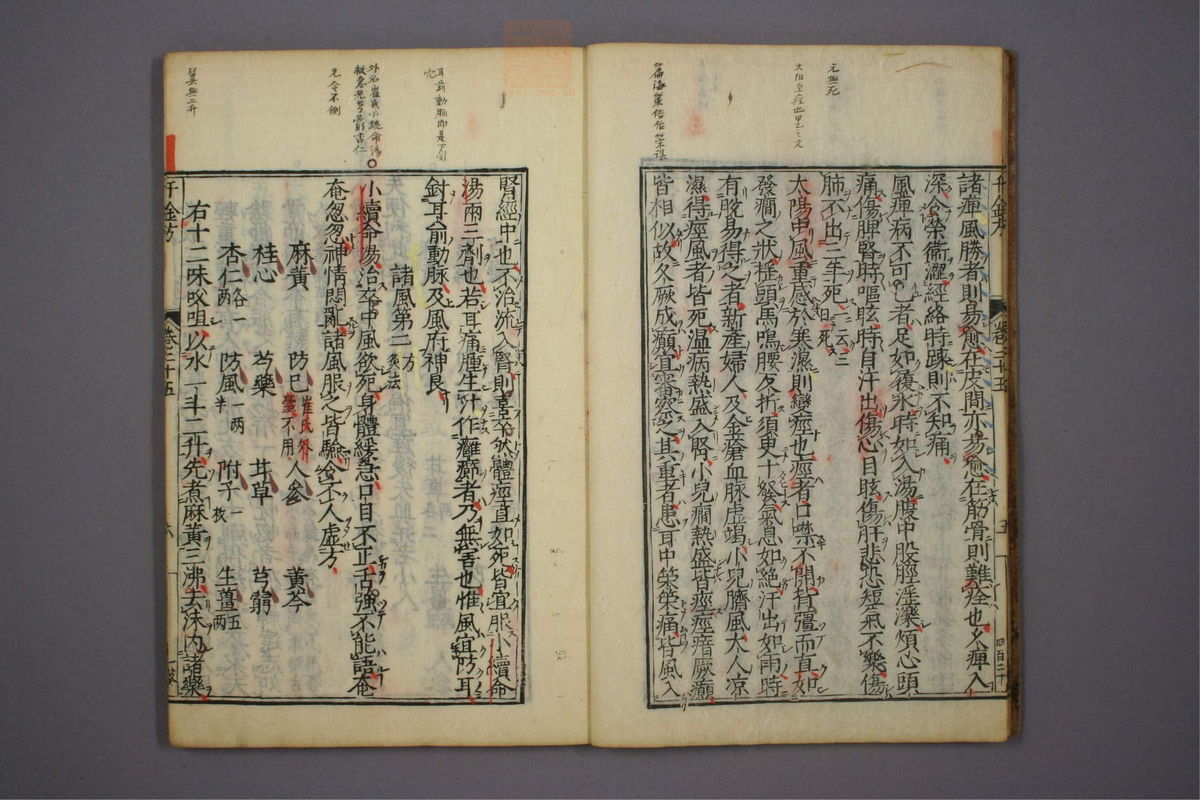 諸痺風勝者則易愈在皮間亦易愈在筋骨則難痊也久痺入
深令榮衛澀經絡時踈則不知痛
風痺病不可已者足如履氷時如入湯腹中股脛淫濼煩心頭
痛傷脾腎時嘔眩時自汗出傷心目眩傷肝悲恐短氣不樂傷
肺不出三年死一云三日死
太陽中風重感於寒濕則變痙也痙者口噤不開背彊而直如
發癇之狀揺頭馬鳴腰反折須臾十發氣息如絶汗出如雨時
有脫易得之者新產婦人及金瘡血脉虚竭小兒臍風大人凉
濕得痙風者皆死温病熱盛入腎小兒癇熱盛皆痙痙瘖厥癲
皆相似故久厥成癲宜審察之其重者患耳中策策痛皆風入
腎經中也不治流入腎則喜卒然體痙直如死皆宜服小續命
湯兩三劑也若耳痛腫生汁作癰癤者乃無害也惟風宜防耳
針耳前動脉及風府神良
諸風第二方 灸法
小續命湯治卒中風欲死身體緩急口目不正舌強不能語奄
奄忽忽神情悶亂諸風服之皆驗令不人虚方
麻黃 防巳崔氏外臺不用 人參 黃芩
桂心 芍藥 甘草 芎藭
杏仁各一兩 防風一兩半 附子一枚 生薑五兩
右十二味㕮咀以水一斗二升先煮麻黃三沸去沫内諸藥
千金方
卷二十五
五
千金方
卷二十五
六
元无死